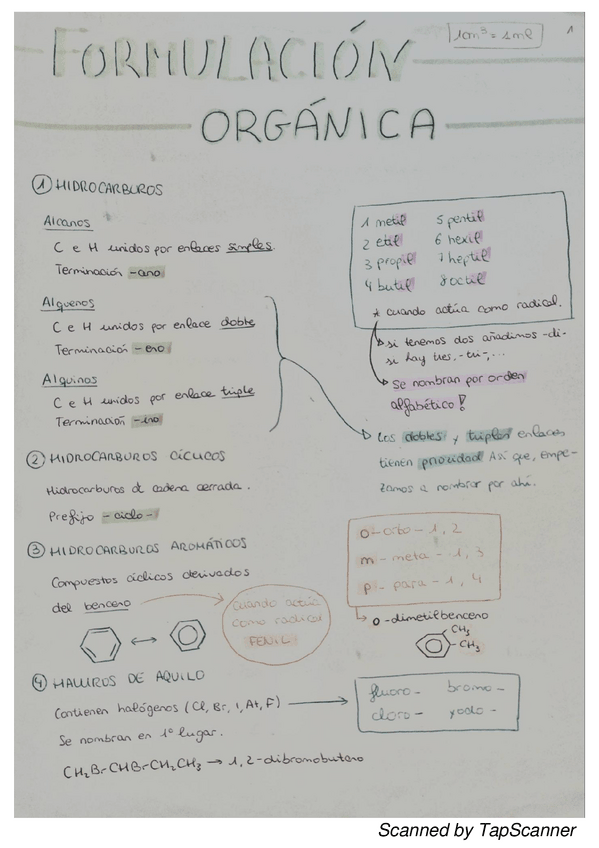 1cm³ = 1ml
1
FORMULACIÓN
ORGÁNICA
① HIDROCARBUROS
Alcanos
C e H unidos por enlaces simples.
Terminación -ano
Alquenos
C e H unidos por enlace doble
Terminación -eno
Alquinos
C e H unidos por enlace triple
Terminación -ino
1 metil 5 pentil
2 etil 6 hexil
3 propil 7 heptil
4 butil 8 octil
* cuando actúa como radical.
si tenemos dos añadimos -di-
si hay tres, -tri-,...
Se nombran por orden
alfabético!
Los dobles y triples enlaces
tienen prioridad. Así que, empe-
zamos a nombrar por ahí.
② HIDROCARBUROS CÍCLICOS
Hidrocarburos de cadena cerrada.
Prefijo -ciclo-
③ HIDROCARBUROS AROMÁTICOS
Compuestos cíclicos derivados
del benceno
cuando actúa
como radical
FENIL
o-orto-1,2
m-meta-1,3
p-para-1,4
o-dimetilbenceno
CH₃
CH₃
④ HALUROS DE AQUILO
Contienen halógenos (Cl, Br, I, At, F)
Se nombran en 1º lugar.
fluoro- bromo-
cloro- yodo-
CH₂BrCHBrCH₂CH₃ → 1,2-dibromobutano
Scanned by TapScanner